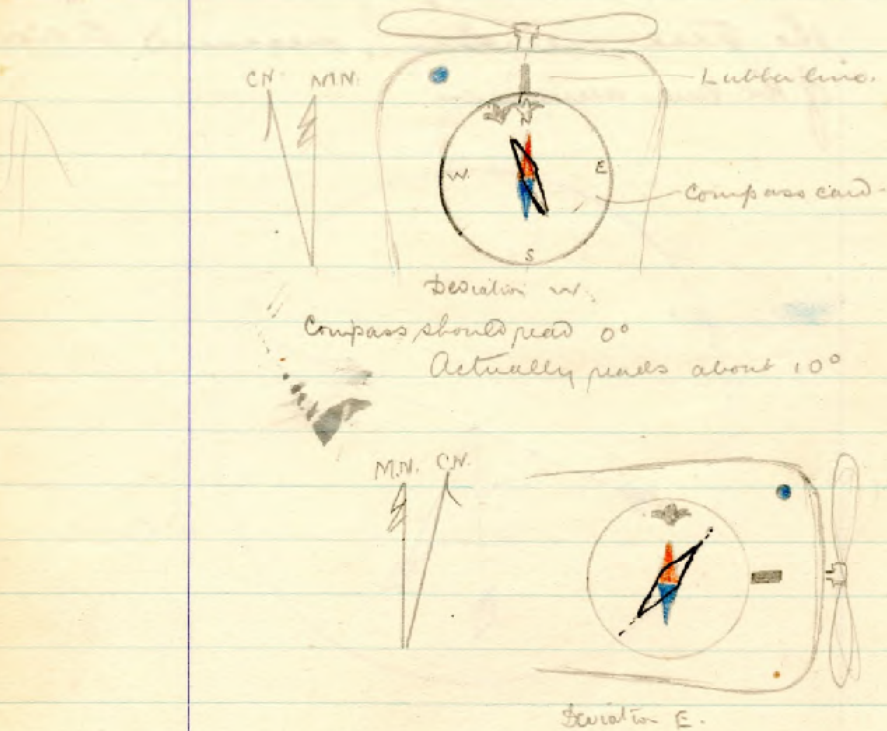 C.N. M.N.
Lubber line.
N
W.
E
Compass card
S
Deviation W.
Compass should read 0°
Actually reads about 10°
M.N. C.N.
Deviation E.